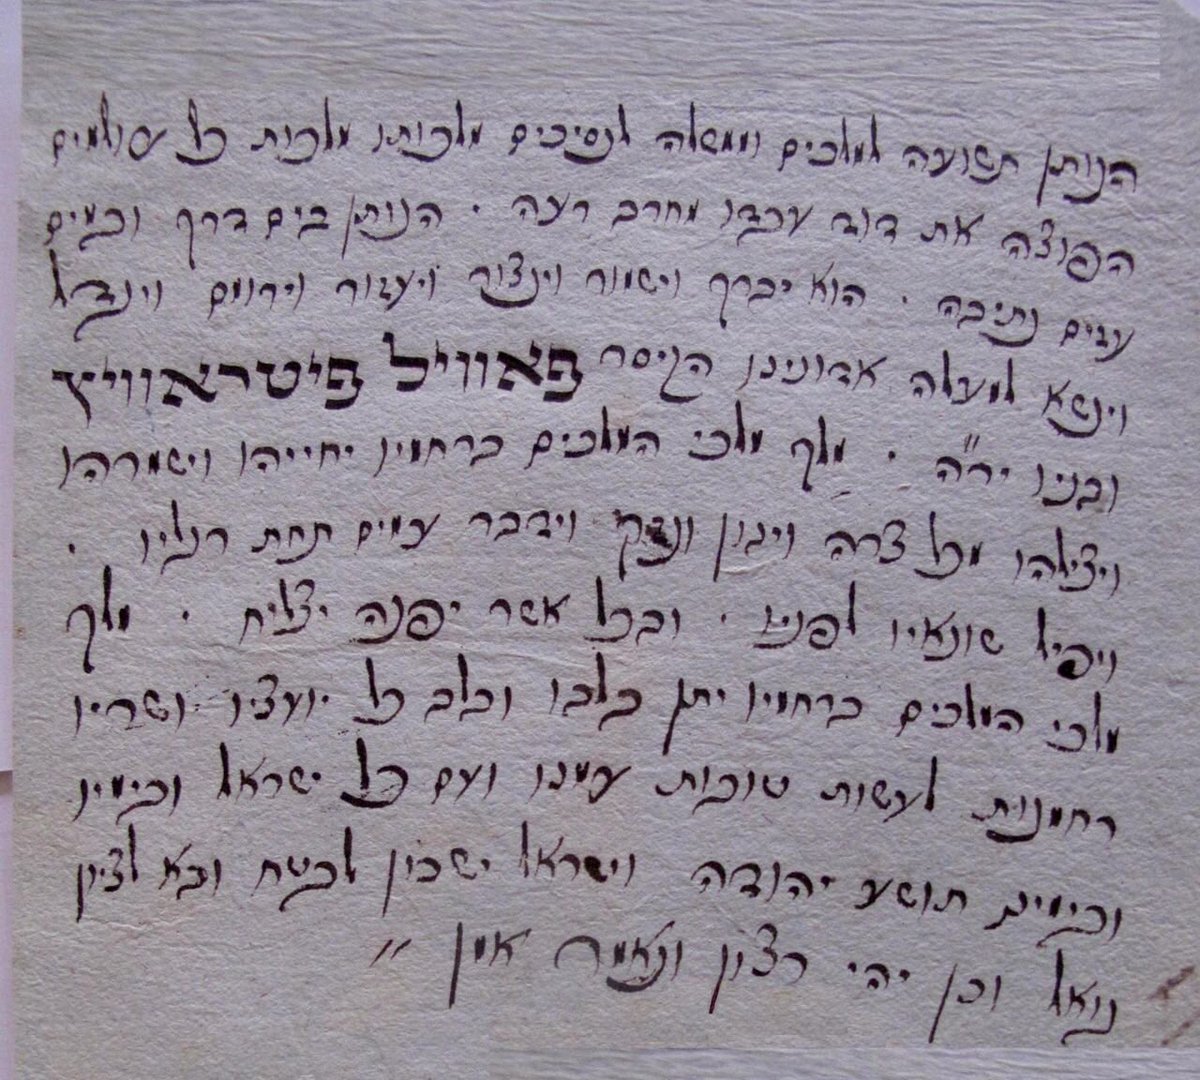 הנותן תשועה למלכים וממשלה לנסיכים מלכותו מלכות כל עולמים
הפוצה את דוד עבדו מחרב רעה . הנותן בים דרך ובמים
עזים נתיבה . הוא יברך וישמור וינצור ויעזור וירומם ויגדל
וינשא למעלה אדונינו הקיסר פאוויל פיטראוויץ
ובניו יר״ה . מלך מלכי המלכים ברחמיו יחייהו וישמרהו
ויצילהו מכל צרה ויגון ונזק וידבר עמים תחת רגליו .
ויפיל שונאיו לפניו . ובכל אשר יפנה יצליח . מלך
מלכי המלכים ברחמיו יתן בלבו ובלב כל יועציו ושריו
רחמנות לעשות טובות עמנו ועם כל ישראל ובימיו
ובימינו תושע יהודה וישראל ישכון לבטח ובא לציון
גואל וכן יהי רצון ונאמר אמן "